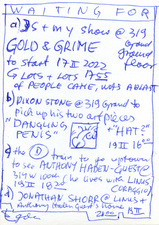 WAITING FOR
a) DS + my show @ 319
Grand
GOLD & GRIME ground
floor
to start 17 II 2022
G LOTS + LOTS 1755
of PEOPLE CAME, WAS A BLAST
b) DIXON STONE @ 319 Grand to
pick up his two art pieces
"DANGLING + "HAT"
PENIS" 19 II 16
c) the D train to go uptown
to see ANTHONY HADEN-GUEST @
319 W (he lives with LINUS
19 II 1820 CORAGGIO)
d) JONATHAN SHORR @ LINUS +
Anthony Haden Guest's